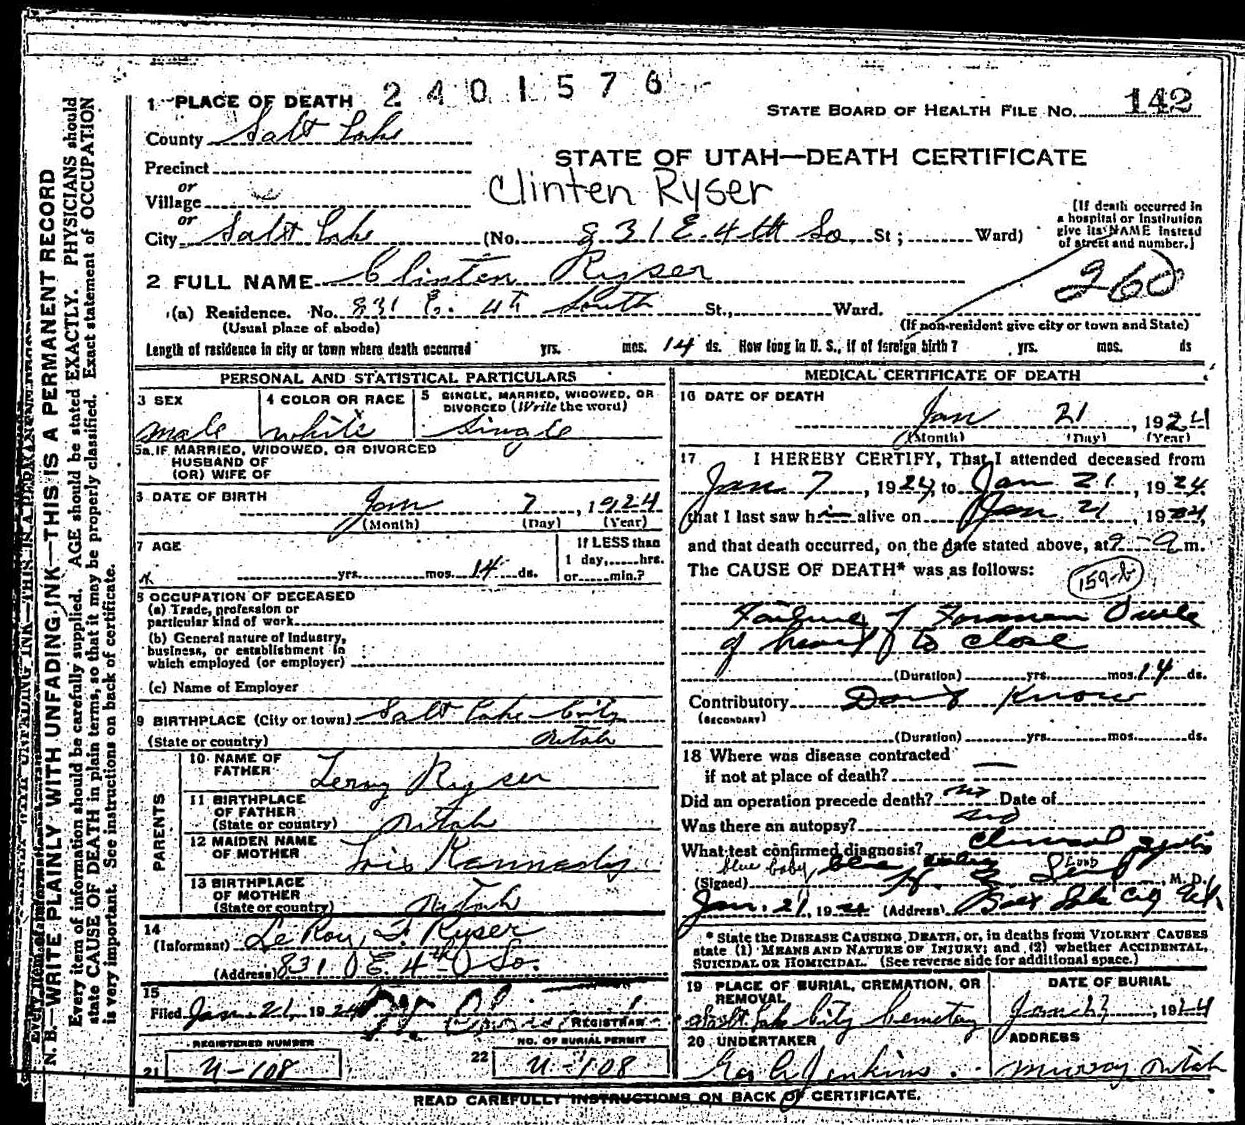 2401576
1 PLACE OF DEATH
STATE BOARD OF HEALTH FILE NO. 142
County Salt Lake
STATE OF UTAH—DEATH CERTIFICATE
Precinct
or
Village
Clinten Ryser
or
City Salt Lake (No. 831 E. 4th So. St; Ward)
(If death occurred in
a hospital or institution
give its NAME instead
of street and number.)
2 FULL NAME Clinten Ryser
260
(a) Residence. No. 831 E. 4th South St., Ward.
(Usual place of abode)
(If non-resident give city or town and State)
Length of residence in city or town where death occurred yrs. mos. 14 ds. How long in U. S., if of foreign birth? yrs. mos. ds
PERSONAL AND STATISTICAL PARTICULARS
3 SEX
male
4 COLOR OR RACE
white
5 SINGLE, MARRIED, WIDOWED, OR
DIVORCED (Write the word)
Single
5a. IF MARRIED, WIDOWED, OR DIVORCED
HUSBAND OF
(OR) WIFE OF
6 DATE OF BIRTH Jan 7, 1924
(Month) (Day) (Year)
7 AGE
yrs. mos. 14 ds.
If LESS than
1 day, hrs.
or min.?
8 OCCUPATION OF DECEASED
(a) Trade, profession or
particular kind of work
(b) General nature of industry,
business, or establishment in
which employed (or employer)
(c) Name of Employer
9 BIRTHPLACE (City or town) Salt Lake City
(State or country) Utah
PARENTS
10 NAME OF
FATHER Leroy Ryser
11 BIRTHPLACE
OF FATHER
(State or country) Utah
12 MAIDEN NAME
OF MOTHER Kannady
13 BIRTHPLACE
OF MOTHER
(State or country) Utah
14
(Informant) Le Roy F. Ryser
(Address) 831 E. 4th So.
15
Filed Jan. 21, 1924
REGISTRAR
REGISTERED NUMBER
21 U-108
NO. OF BURIAL PERMIT
22 U-108
MEDICAL CERTIFICATE OF DEATH
16 DATE OF DEATH
Jan 21, 1924
(Month) (Day) (Year)
17 I HEREBY CERTIFY, That I attended deceased from
Jan 7, 1924, to Jan 21, 1924,
that I last saw him alive on Jan 21, 1924,
and that death occurred, on the date stated above, at 9 - a m.
The CAUSE OF DEATH* was as follows:
159-b
Failure of Foramen Ovale
of heart to close
(Duration) yrs. mos. 14 ds.
Contributory Don't Know
(SECONDARY)
(Duration) yrs. mos. ds.
18 Where was disease contracted
if not at place of death? —
Did an operation precede death? no Date of
Was there an autopsy? no
What test confirmed diagnosis?
blue baby
(Signed) M. D.
Jan. 21, 1924 (Address) Salt Lake City Ut.
* State the DISEASE CAUSING DEATH, or, in deaths from VIOLENT CAUSES
state (1) MEANS AND NATURE OF INJURY; and (2) whether ACCIDENTAL,
SUICIDAL OR HOMICIDAL. (See reverse side for additional space.)
19 PLACE OF BURIAL, CREMATION, OR
REMOVAL
Salt Lake City Cemetery
DATE OF BURIAL
Jan 23, 1924
20 UNDERTAKER
Jenkins
ADDRESS
Murray Utah
READ CAREFULLY INSTRUCTIONS ON BACK OF CERTIFICATE.
N. B.—WRITE PLAINLY WITH UNFADING INK—THIS IS A PERMANENT RECORD
Every item of information should be carefully supplied. AGE should be stated EXACTLY. PHYSICIANS should
state CAUSE OF DEATH in plain terms, so that it may be properly classified. Exact statement of OCCUPATION
is very important. See instructions on back of certificate.